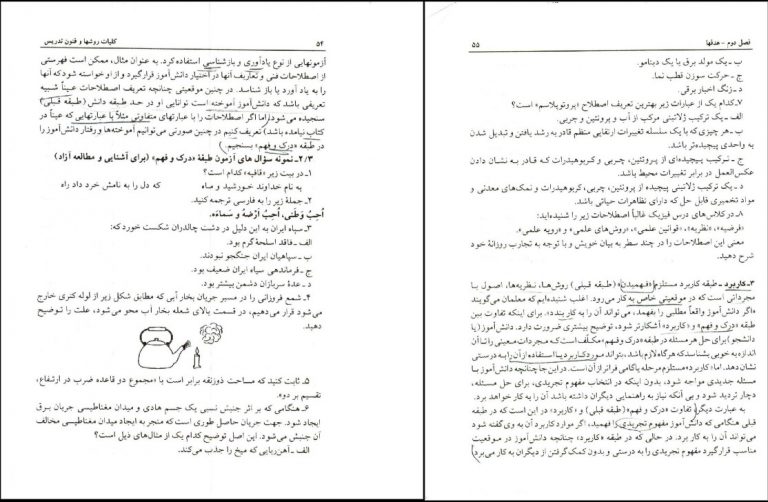 ۵۴
کلیات روشها و فنون تدریس
آزمونهایی از نوع یادآوری و بازشناسی استفاده کرد. به عنوان مثال، ممکن است فهرستی
از اصطلاحات فنی و تعاریف آنها در اختیار دانش‌آموز قرارگیرد و از او خواسته شود که آنها
را به یاد آورد یا باز شناسد. در چنین موقعیتی چنانچه تعریف اصطلاحات عیناً شبیه
تعریفی باشد که دانش‌آموز آموخته است توانایی او در حد طبقه دانش (طبقه قبلی)
سنجیده می‌شود، اما اگر اصطلاحات را با عبارتهای متفاوتی مثلاً با عبارتهایی که عیناً در
کتاب نیامده باشد) تعریف کنیم در چنین صورتی می‌توانیم آموخته‌ها و رفتار دانش‌آموز را
در طبقه «درک و فهم» بسنجیم.
۲/۳ــ نمونه سؤال های آزمون طبقهٔ «درک و فهم» (برای آشنایی و مطالعه آزاد)
۱ــ در بیت زیر «قافیه» کدام است؟
به نام خداوند خورشید و ماه که دل را به نامش خرد داد راه
۲ــ جملهٔ زیر را به فارسی ترجمه کنید.
اُحِبُّ وَطَنی، اُحِبُّ اَرْضَهُ وَ سَماءَه.
۳ــ سپاه ایران به این دلیل در دشت چالدران شکست خورد که:
الف ــ فاقد اسلحهٔ گرم بود.
ب ــ سپاهیان ایران جنگجو نبودند.
ج ــ فرماندهی سپاه ایران ضعیف بود.
د ــ عدهٔ سربازان دشمن بیشتر بود.
۴ــ شمع فروزانی را در مسیر جریان بخار آبی که مطابق شکل زیر از لوله کتری خارج
می‌شود قرار می‌دهیم، در قسمت بالای شعله بخار آب محو می‌شود، علت را توضیح
دهید.
۵ــ ثابت کنید که مساحت ذوزنقه برابر است با «مجموع دو قاعده ضرب در ارتفاع،
تقسیم بر دو».
۶ــ هنگامی که بر اثر جنبش نسبی یک جسم هادی و میدان مغناطیسی جریان برق
ایجاد شود. جهت جریان حاصل طوری است که منجر به ایجاد میدان مغناطیسی مخالف
آن جنبش می‌شود. این اصل توضیح کدام یک از مثال‌های ذیل است؟
الف ــ آهن‌ربایی که میخ را جذب می‌کند.
فصل دوم ــ هدفها
۵۵
ب ــ یک مولد برق یا یک دینامو.
ج ــ حرکت سوزن قطب نما.
د ــ زنگ اخبار برقی.
۷ــ کدام یک از عبارات زیر بهترین تعریف اصطلاح «پروتوپلاسم» است؟
الف ــ یک ترکیب ژلاتینی مرکب از آب و پروتئین و چربی.
ب ــ هر چیزی که با یک سلسله تغییرات ارتقایی منظم قادر به رشد یافتن و تبدیل شدن
به واحدی پیچیده‌تر باشد.
ج ــ ترکیب پیچیده‌ای از پروتئین، چربی و کربوهیدرات که قادر به نشان دادن
عکس‌العمل در برابر تغییرات محیط باشد.
د ــ یک ترکیب ژلاتینی پیچیده از پروتئین، چربی، کربوهیدرات و نمک‌های معدنی و
مواد تخمیری قابل حل که دارای تظاهرات حیاتی باشد.
۸ــ در کلاس‌های درس فیزیک غالباً اصطلاحات زیر را شنیده‌اید:
«فرضیه»، «نظریه»، «قوانین علمی»، «روش‌های علمی» و «رویه علمی».
معنی این اصطلاحات را در چند سطر به بیان خویش و با توجه به تجارب روزانهٔ خود
شرح دهید.
۳ــ کاربرد ــ طبقه کاربرد مستلزم «فهمیدن» (طبقه قبلی) روش‌ها، نظریه‌ها، اصول یا
مجرداتی است که در موقعیتی خاص به کار می‌رود. اغلب شنیده‌ایم که معلمان می‌گویند
«اگر دانش‌آموز واقعاً مطلبی را بفهمد، می‌تواند آن را به کار بندد». برای اینکه تفاوت بین
طبقه «درک و فهم» و «کاربرد» آشکارتر شود، توضیح بیشتری ضرورت دارد. دانش‌آموز (یا
دانشجو) برای حل هر مسئله در طبقه «درک و فهم» مکلف است که مجردات معینی را تا آن
اندازه به خوبی بشناسد که هرگاه لازم باشد، بتواند مورد کاربرد یا استفاده از آن را به درستی
نشان دهد. اما «کاربرد» مستلزم مرحله یا گامی فراتر از آن است. در این جا چنانچه دانش‌آموز با
مسئله جدیدی مواجه شود، بدون اینکه در انتخاب مفهوم تجریدی، برای حل مسئله،
دچار تردید شود و بی آنکه نیاز به راهنمایی دیگران داشته باشد آن را به کار خواهد برد.
به عبارت دیگر تفاوت «درک و فهم» (طبقه قبلی) و «کاربرد» در این است که در طبقه
قبلی هنگامی که دانش‌آموز مفهوم تجریدی را فهمید، اگر موارد کاربرد آن به وی گفته شود
می‌تواند آن را به کار برد. در حالی که در طبقه «کاربرد» چنانچه دانش‌آموز در موقعیت
مناسب قرارگیرد مفهوم تجریدی را به درستی و بدون کمک‌گرفتن از دیگران به کار می‌برد.